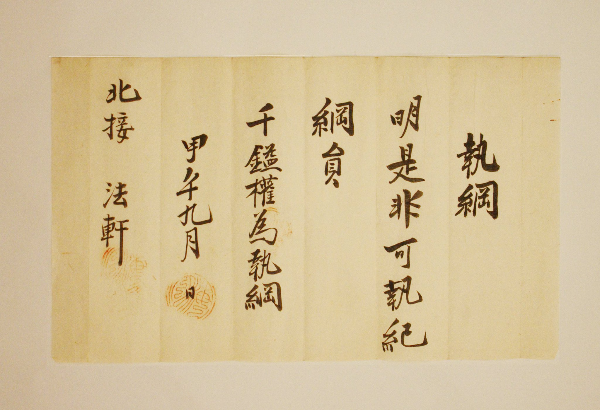 執綱
明是非可執紀
綱員
千鎰權為執綱
甲午九月 日
北接 法軒